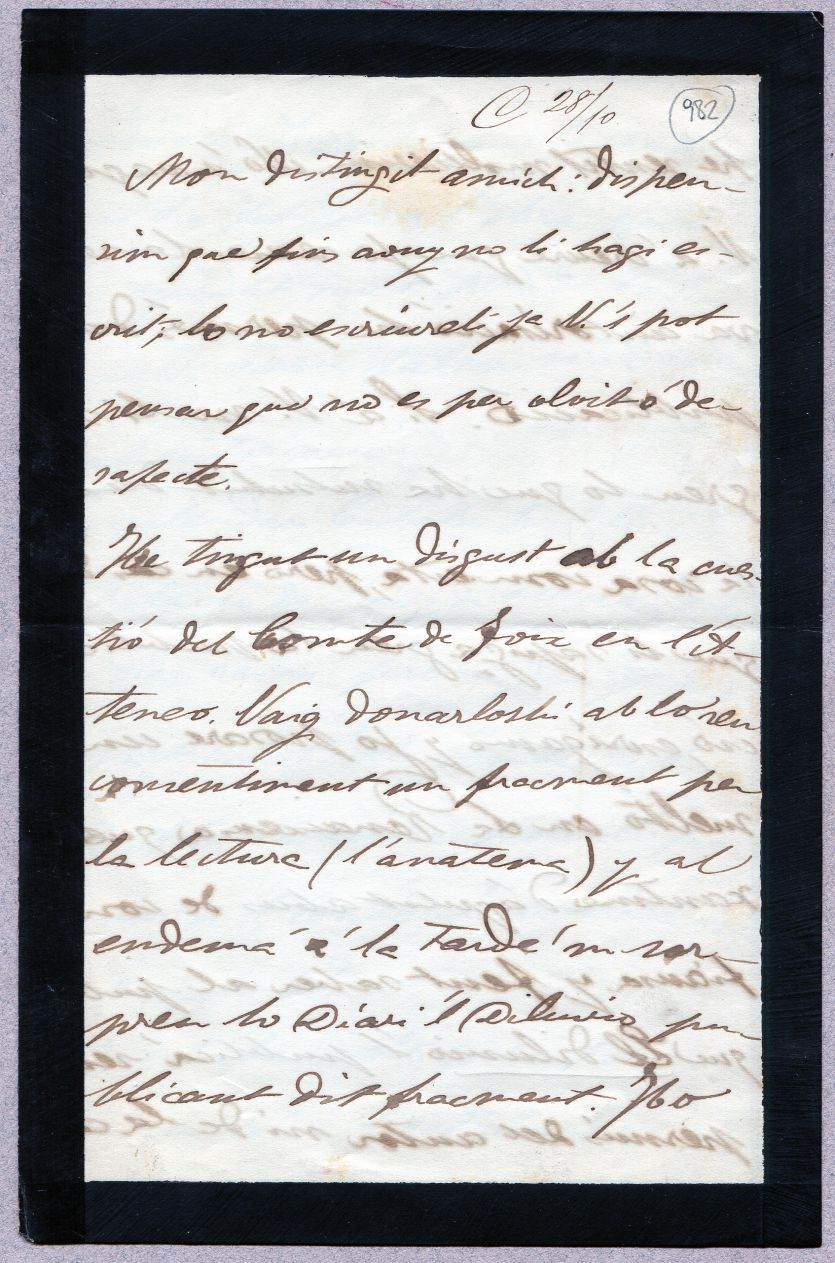 C 28/10
982
Mon distingit amich: dispen-
sim que fins avuy no li hagi es-
crit; lo no escriureli ja V. s pot
pensar que no es per olvit ó de-
safecte.
He tingut un disgust ab la cues-
tió del Comte de Foix en l'A-
teneo. Vaig donarloshi ab lo seu
consentiment un fracment per
la lectura (l'anatema) y al
endemá á la tarde 'm sor-
pren lo Diari 'l Diluvio pu-
blicant dit fracment. Ho